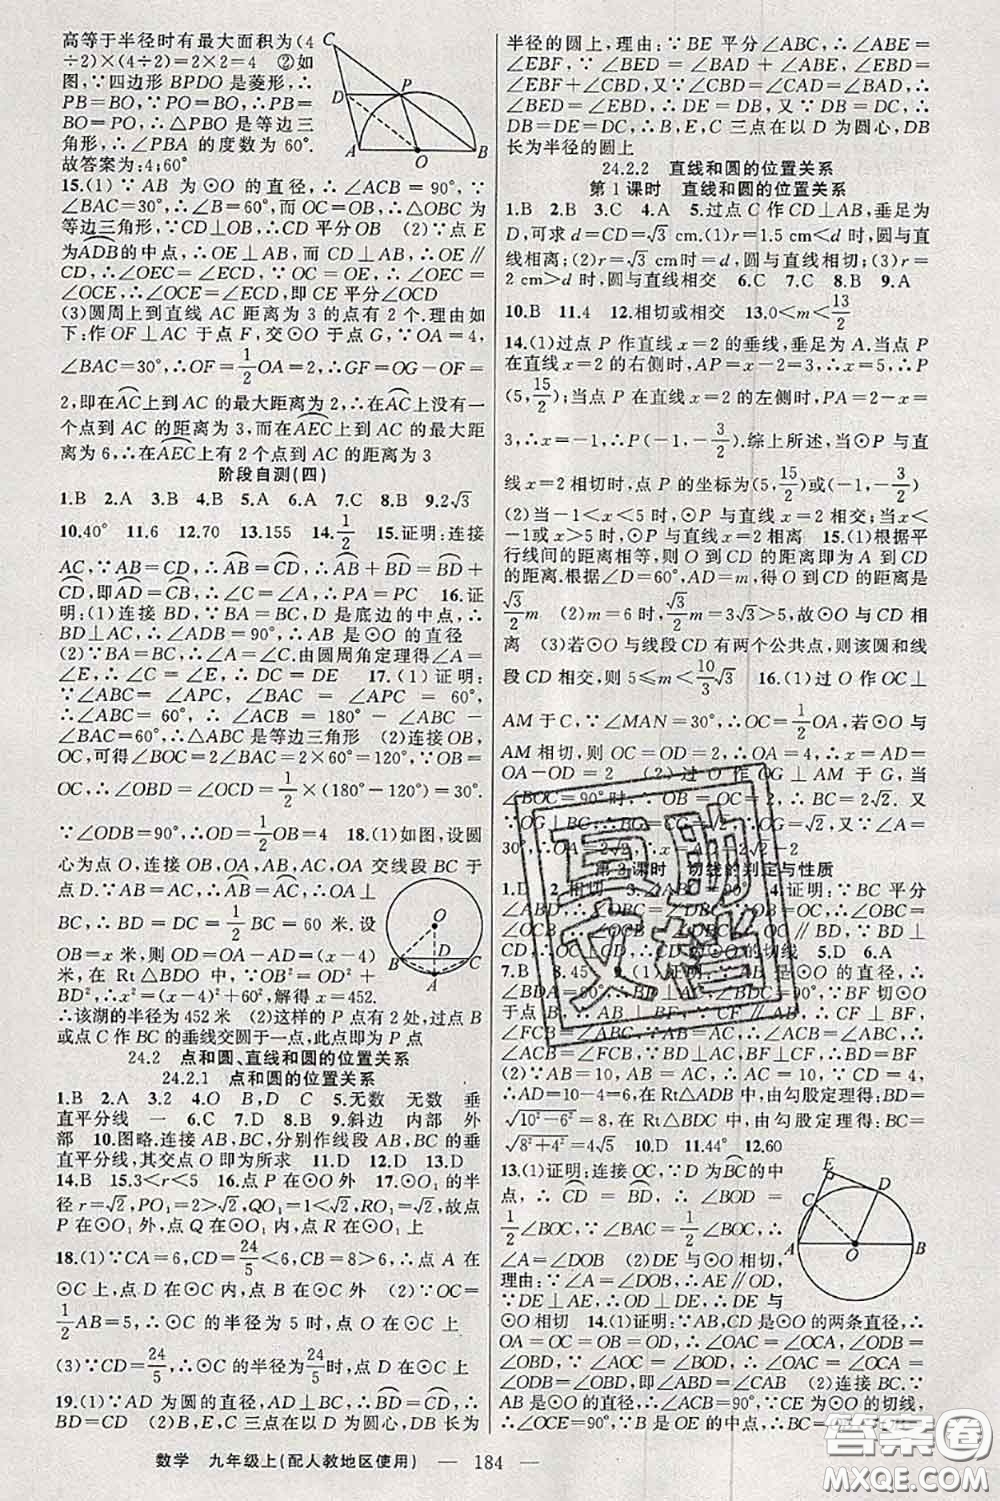 高等于半径时有最大面积为(4
÷2)×(4÷2)=2×2=4 ②如
图,∵四边形 BPDO 是菱形,∴
PB=BO,∵PO=BO,∴PB=
BO=PO,∴△PBO 是等边三
角形,∴∠PBA 的度数为 60°.
故答案为:4;60°
15.(1)∵AB 为⊙O 的直径,∴∠ACB=90°,∵
∠BAC=30°,∴∠B=60°,而 OC=OB,∴△OBC 为
等边三角形,∵CD⊥OB,∴CD 平分 OB (2)∵点 E
为ADB的中点,∴OE⊥AB,而 CD⊥AB,∴OE∥
CD,∴∠OEC=∠ECD,∵OC=OE,∴∠OEC=
∠OCE,∴∠OCE=∠ECD,即 CE 平分∠OCD
(3)圆周上到直线 AC 距离为 3 的点有 2 个.理由如
下:作 OF⊥AC 于点 F,交⊙O 于点 G,∵OA=4,
∠BAC=30°,∴OF=1/2OA=2,∴GF=OG-OF=
2,即在AC上到 AC 的最大距离为 2,∴在AC上没有一
个点到 AC 的距离为 3,而在AEC上到 AC 的最大距
离为 6,∴在AEC上有 2 个点到 AC 的距离为 3
阶段自测(四)
1.B 2.A 3.B 4.B 5.A 6.A 7.C 8.B 9.2√3
10.40° 11.6 12.70 13.155 14.1/2 15.证明:连接
AC,∵AB=CD,∴AB=CD,∴AB+BD=BD+
CD,即AD=CB,∴∠C=∠A,∴PA=PC 16.证
明:(1)连接 BD,∵BA=BC,D 是底边的中点,∴
BD⊥AC,∴∠ADB=90°,∴AB 是⊙O 的直径
(2)∵BA=BC,∴∠A=∠C.由圆周角定理得∠A=
∠E,∴∠C=∠E,∴DC=DE 17.(1)证明:
∵∠ABC=∠APC,∠BAC=∠APC=60°,
∴∠ABC=60°,∴∠ACB=180°-∠ABC-
∠BAC=60°,∴△ABC 是等边三角形 (2)连接 OB,
OC,可得∠BOC=2∠BAC=2×60°=120°,∵OB=
OC,∴∠OBD=∠OCD=1/2×(180°-120°)=30°.
∵∠ODB=90°,∴OD=1/2OB=4 18.(1)如图,设圆
心为点 O,连接 OB,OA,AB,OA 交线段 BC 于
点 D,∵AB=AC,∴AB=AC,∴OA⊥
BC,∴BD=DC=1/2BC=60 米.设
OB=x 米,则 OD=OA-AD=(x-4)
米,在 Rt△BDO 中,∵OB²=OD²+
BD²,∴x²=(x-4)²+60²,解得 x=452.
∴该湖的半径为 452 米 (2)这样的 P 点有 2 处,过点 B
或点 C 作 BC 的垂线交圆于一点,此点即为 P 点
24.2 点和圆、直线和圆的位置关系
24.2.1 点和圆的位置关系
1.B 2.A 3.2 4.O B,D C 5.无数 无数 垂
直平分线 一 6.C 7.D 8.B 9.斜边 内部 外
部 10.图略.连接 AB,BC,分别作线段 AB,BC 的垂
直平分线,其交点 O 即为所求 11.D 12.D 13.D
14.B 15.3<r<5 16.点 O 外 17.⊙O₁ 的半
径 r=√2,PO₁=2>√2,QO₁=1<√2,RO₁=√2,故点
P 在⊙O₁ 外,点 Q 在⊙O₁ 内,点 R 在⊙O₁ 上
18.(1)∵CA=6,CD=24/5<6,CB=8>6,∴点 A 在
⊙C 上,点 D 在⊙C 内,点 B 在⊙C 外 (2)∵OC=
1/2AB=5,∴⊙C 的半径为 5 时,点 O 在⊙C 上
(3)∵CD=24/5,∴⊙C 的半径为24/5时,点 D 在⊙C 上
19.(1)∵AD 为圆的直径,AD⊥BC,∴BD=CD,∴
BD=CD (2)B,E,C 三点在以 D 为圆心,DB 长为
半径的圆上,理由:∵BE 平分∠ABC,∴∠ABE=
∠EBF,∵∠BED=∠BAD+∠ABE,∠EBD=
∠EBF+∠CBD,又∵∠CBD=∠CAD=∠BAD,∴
∠BED=∠EBD,∴DE=DB,又∵DB=DC,∴
DB=DE=DC,∴B,E,C 三点在以 D 为圆心,DB
长为半径的圆上
24.2.2 直线和圆的位置关系
第 1 课时 直线和圆的位置关系
1.B 2.B 3.C 4.A 5.过点 C 作 CD⊥AB,垂足为
D,可求 d=CD=√3 cm.(1)r=1.5 cm<d,圆与直
线相离;(2)r=√3 cm时=d,圆与直线相切;(3)r=
2 cm>d 时,圆与直线相交 6.C 7.C 8.B 9.A
10.B 11.4 12.相切或相交 13.0<m<13/2
14.(1)过点 P 作直线 x=2 的垂线,垂足为 A.当点 P
在直线 x=2 的右侧时,AP=x-2=3,∴x=5,∴P
(5,15/2);当点 P 在直线 x=2 的左侧时,PA=2-x=
3,∴x=-1,∴P(-1,-3/2).综上所述,当⊙P 与直
线 x=2 相切时,点 P 的坐标为(5,15/2)或(-1,-3/2)
(2)当-1<x<5 时,⊙P 与直线 x=2 相交;当 x<
-1 或 x>5 时,⊙P 与直线 x=2 相离 15.(1)根据平
行线间的距离相等,则 O 到 CD 的距离即为 A 到 CD
的距离.根据∠D=60°,AD=m,得 O 到 CD 的距离为
√3/2m (2)m=6 时,√3/2m=3√3>5,故⊙O 与 CD 相
离 (3)若⊙O 与线段 CD 有两个公共点,则该圆和线
段 CD 相交,则 5≤m<10/3√3 16.(1)过 O 作 OC⊥
AM 于 C,∵∠MAN=30°,∴OC=1/2OA,若⊙O 与
AM 相切,则 OC=OD=2,∴OA=4,∴x=AD=
OA-OD=2 (2)过 O 作 OG⊥AM 于 G,当
∠BOC=90°时,∵OB=OC=2,∴BC=2√2.又
∵OG⊥BC,∴BG=CG=√2,∴OG=√2,又∵∠A=
30°,∴OA=2√2,∴x=
课时 切线的判定与性质
1.D 2.相切 3.∠ABC=90° 4.证明:∵BC 平分
∠ABD,∴∠OBC=
5.D 6.A
7.B 8.45
10.D 11.44° 12.60
(2)∵AB=10,AB=AC,∴AC=10,∵CD=4,
∴AD=10-4=6,在 Rt△ADB 中,由勾股定理得:BD=
√10²-6²=8,在 Rt△BDC 中,由勾股定理得:BC=
√8²+4²=4√5
13.(1)证明:连接 OC,∵D 为BC的中
点,∴CD=BD,∴∠BOD=
1/2∠BOC,∵∠BAC=1/2∠BOC,∴
∠A=∠DOB (2)DE 与⊙O 相切,
理由:∵∠A=∠DOB,∴AE∥OD,
∵DE⊥AE,∴OD⊥DE,∴DE 与
⊙O 相切 14.(1)证明:∵AB,CD 是⊙O 的两条直径,∴
OA=OC=OB=OD,∴∠OAC=∠OCA,∠ODB=
∠OBD,∵∠AOC=∠BOD,∴∠OAC=∠OCA=
∠ODB=∠OBD,即∠ABD=∠CAB (2)连接 BC.∵
AB 是⊙O 的直径,∴∠ACB=90°,∵CE 为⊙O 的切线,
∴∠OCE=90°,∵B 是 OE 的中点,∴BC=
数学 九年级上(配人教地区使用) — 184 —
C
D
P
A
O
B
O
B
D
C
A
E
C
D
A
O
B
答案圈
MXQE.COM